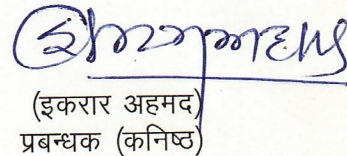 (इकरार अहमद)
प्रबन्धक (कनिष्ठ)